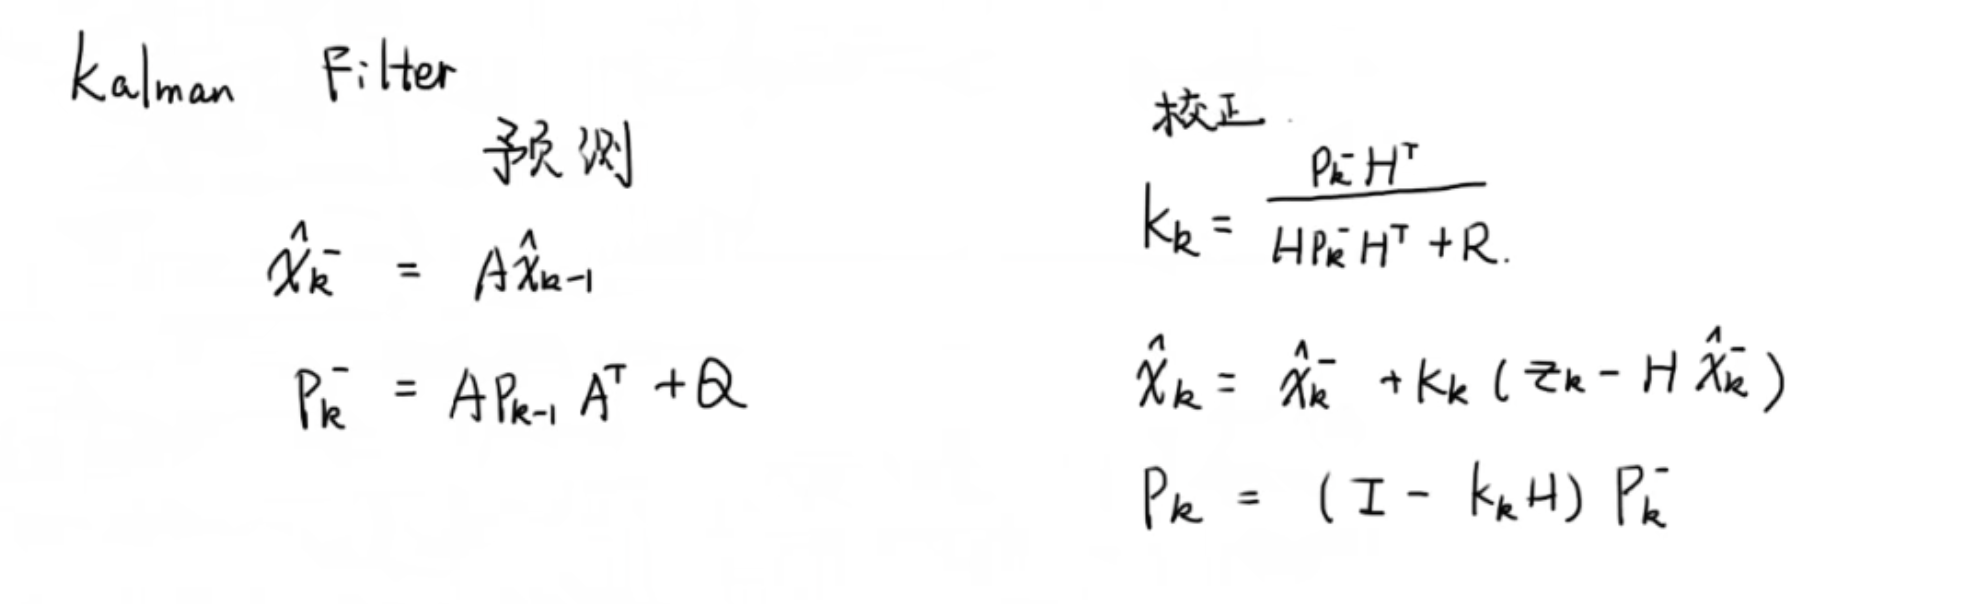 Kalman Filter
预测
x̂ₖ⁻ = Ax̂ₖ₋₁
Pₖ⁻ = APₖ₋₁Aᵀ + Q
校正
Kₖ = Pₖ⁻Hᵀ / (HPₖ⁻Hᵀ + R)
x̂ₖ = x̂ₖ⁻ + Kₖ(zₖ - Hx̂ₖ⁻)
Pₖ = (I - KₖH)Pₖ⁻